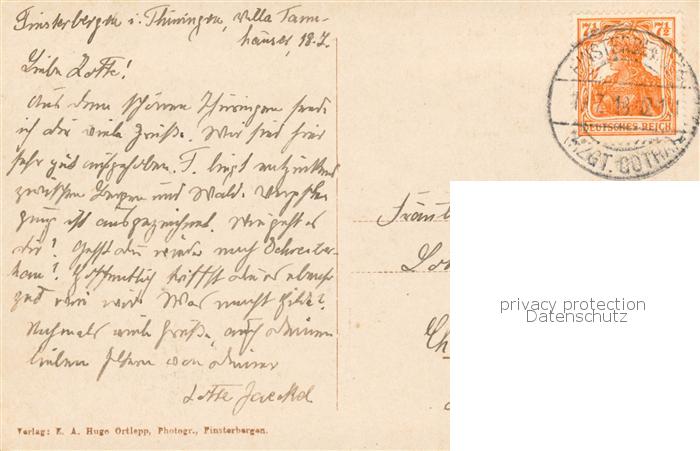 Finsterbergen i. Thüringen, Villa Tann-
häuser, 18.7.
Liebe Lotte!
Aus dem schönen Thüringen sende
ich dir viele Grüße. Wir sind hier
sehr gut aufgehoben. F. liegt entzückend
zwischen Bergen und Wald. Verpfle-
gung ist ausgezeichnet. Wie geht es
dir? Gehst du wieder nach Schreiber-
hau? Hoffentlich triffst du es ebenso
gut wie wir. Was macht Hilde?
Nochmals viele Grüße, auch deinen
lieben Eltern von deiner
Lotte Jaeckel
Verlag: E. A. Hugo Ortlepp, Photogr., Finsterbergen.
7½ 7½
DEUTSCHES REICH
FINSTERBERGEN
(HZGT. GOTHA)
Fräul
Lo
Ch
privacy protection
Datenschutz